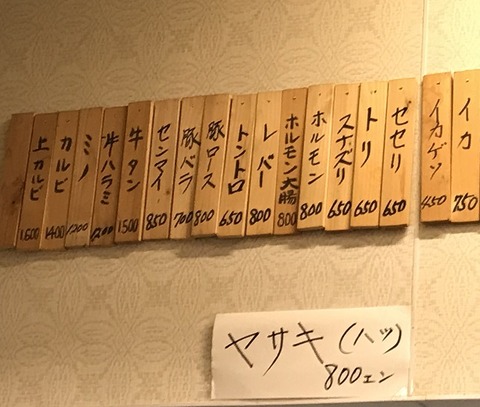 イカ 750
イカゲソ 450
ゼセリ 650
トリ 650
スナズリ 650
ホルモン 800
ホルモン大腸 800
レバー 800
トントロ 650
豚ロース 800
豚バラ 700
センマイ 850
牛タン 1500
牛ハラミ 1200
ミノ 1200
カルビ 1400
上カルビ 1600
ヤサキ(ハツ)
800エン